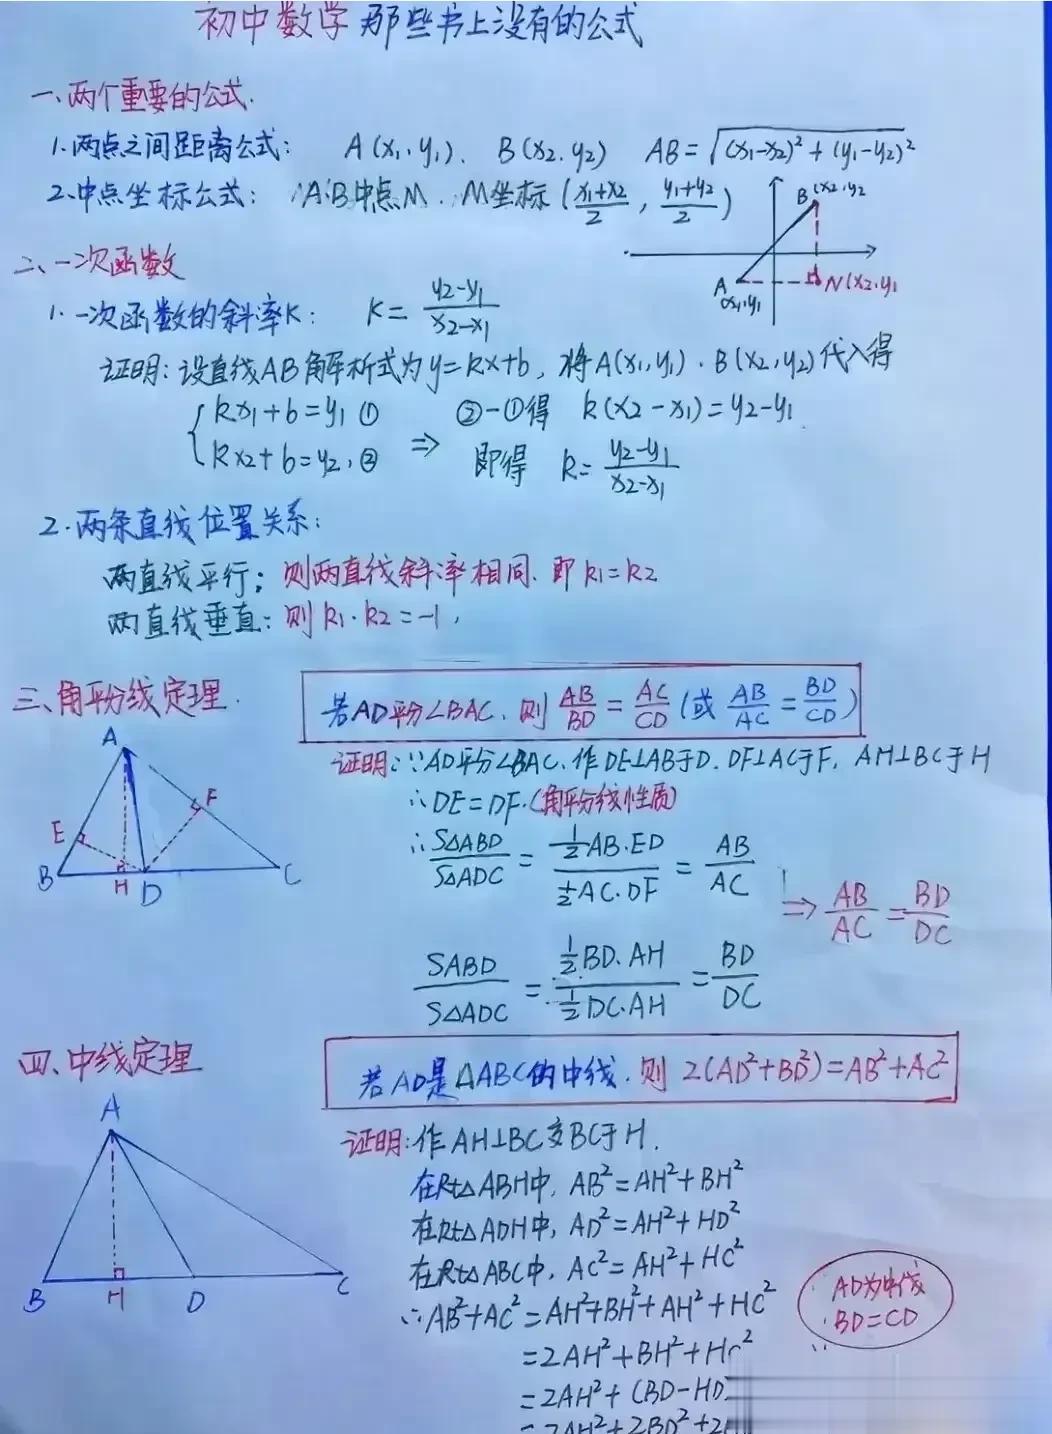 初中数学 那些书上没有的公式
一、两个重要的公式.
1.两点之间距离公式: A(x₁,y₁). B(x₂.y₂) AB=√(x₁-x₂)²+(y₁-y₂)²
2.中点坐标公式: A.B中点M. M坐标(x₁+x₂/2, y₁+y₂/2)
B(x₂,y₂
A
(x₁,y₁
N(x₂,y₁
二、一次函数
1.一次函数的斜率K: K=y₂-y₁/x₂-x₁
证明:设直线AB解析式为y=kx+b,将A(x₁,y₁).B(x₂,y₂)代入得
{kx₁+b=y₁ ① ②-①得 k(x₂-x₁)=y₂-y₁
kx₂+b=y₂.② ⇒ 即得 k=y₂-y₁/x₂-x₁
2.两条直线位置关系:
两直线平行;则两直线斜率相同.即k₁=k₂
两直线垂直:则k₁·k₂=-1,
三、角平分线定理.
若AD平分∠BAC.则AB/BD=AC/CD(或AB/AC=BD/CD)
证明:∵AD平分∠BAC.作DE⊥AB于D.DF⊥AC于F, AH⊥BC于H
∴DE=DF.(角平分线性质)
∴S△ABD/S△ADC=½AB·ED/½AC·DF=AB/AC
⇒AB/AC=BD/DC
SABD/S△ADC=½BD.AH/½DC.AH=BD/DC
A
E
F
B
H
D
C
四、中线定理
若AD是△ABC的中线.则2(AD²+BD²)=AB²+AC²
证明:作AH⊥BC交BC于H.
在Rt△ABH中,AB²=AH²+BH²
在Rt△ADH中,AD²=AH²+HD²
在Rt△ABC中,AC²=AH²+HC²
∴AB²+AC²=AH²+BH²+AH²+HC²
=2AH²+BH²+H ²
=2AH²+(BD-HD
=2AH²+2BD²+2
AD为中线
BD=CD
A
B
H
D
C